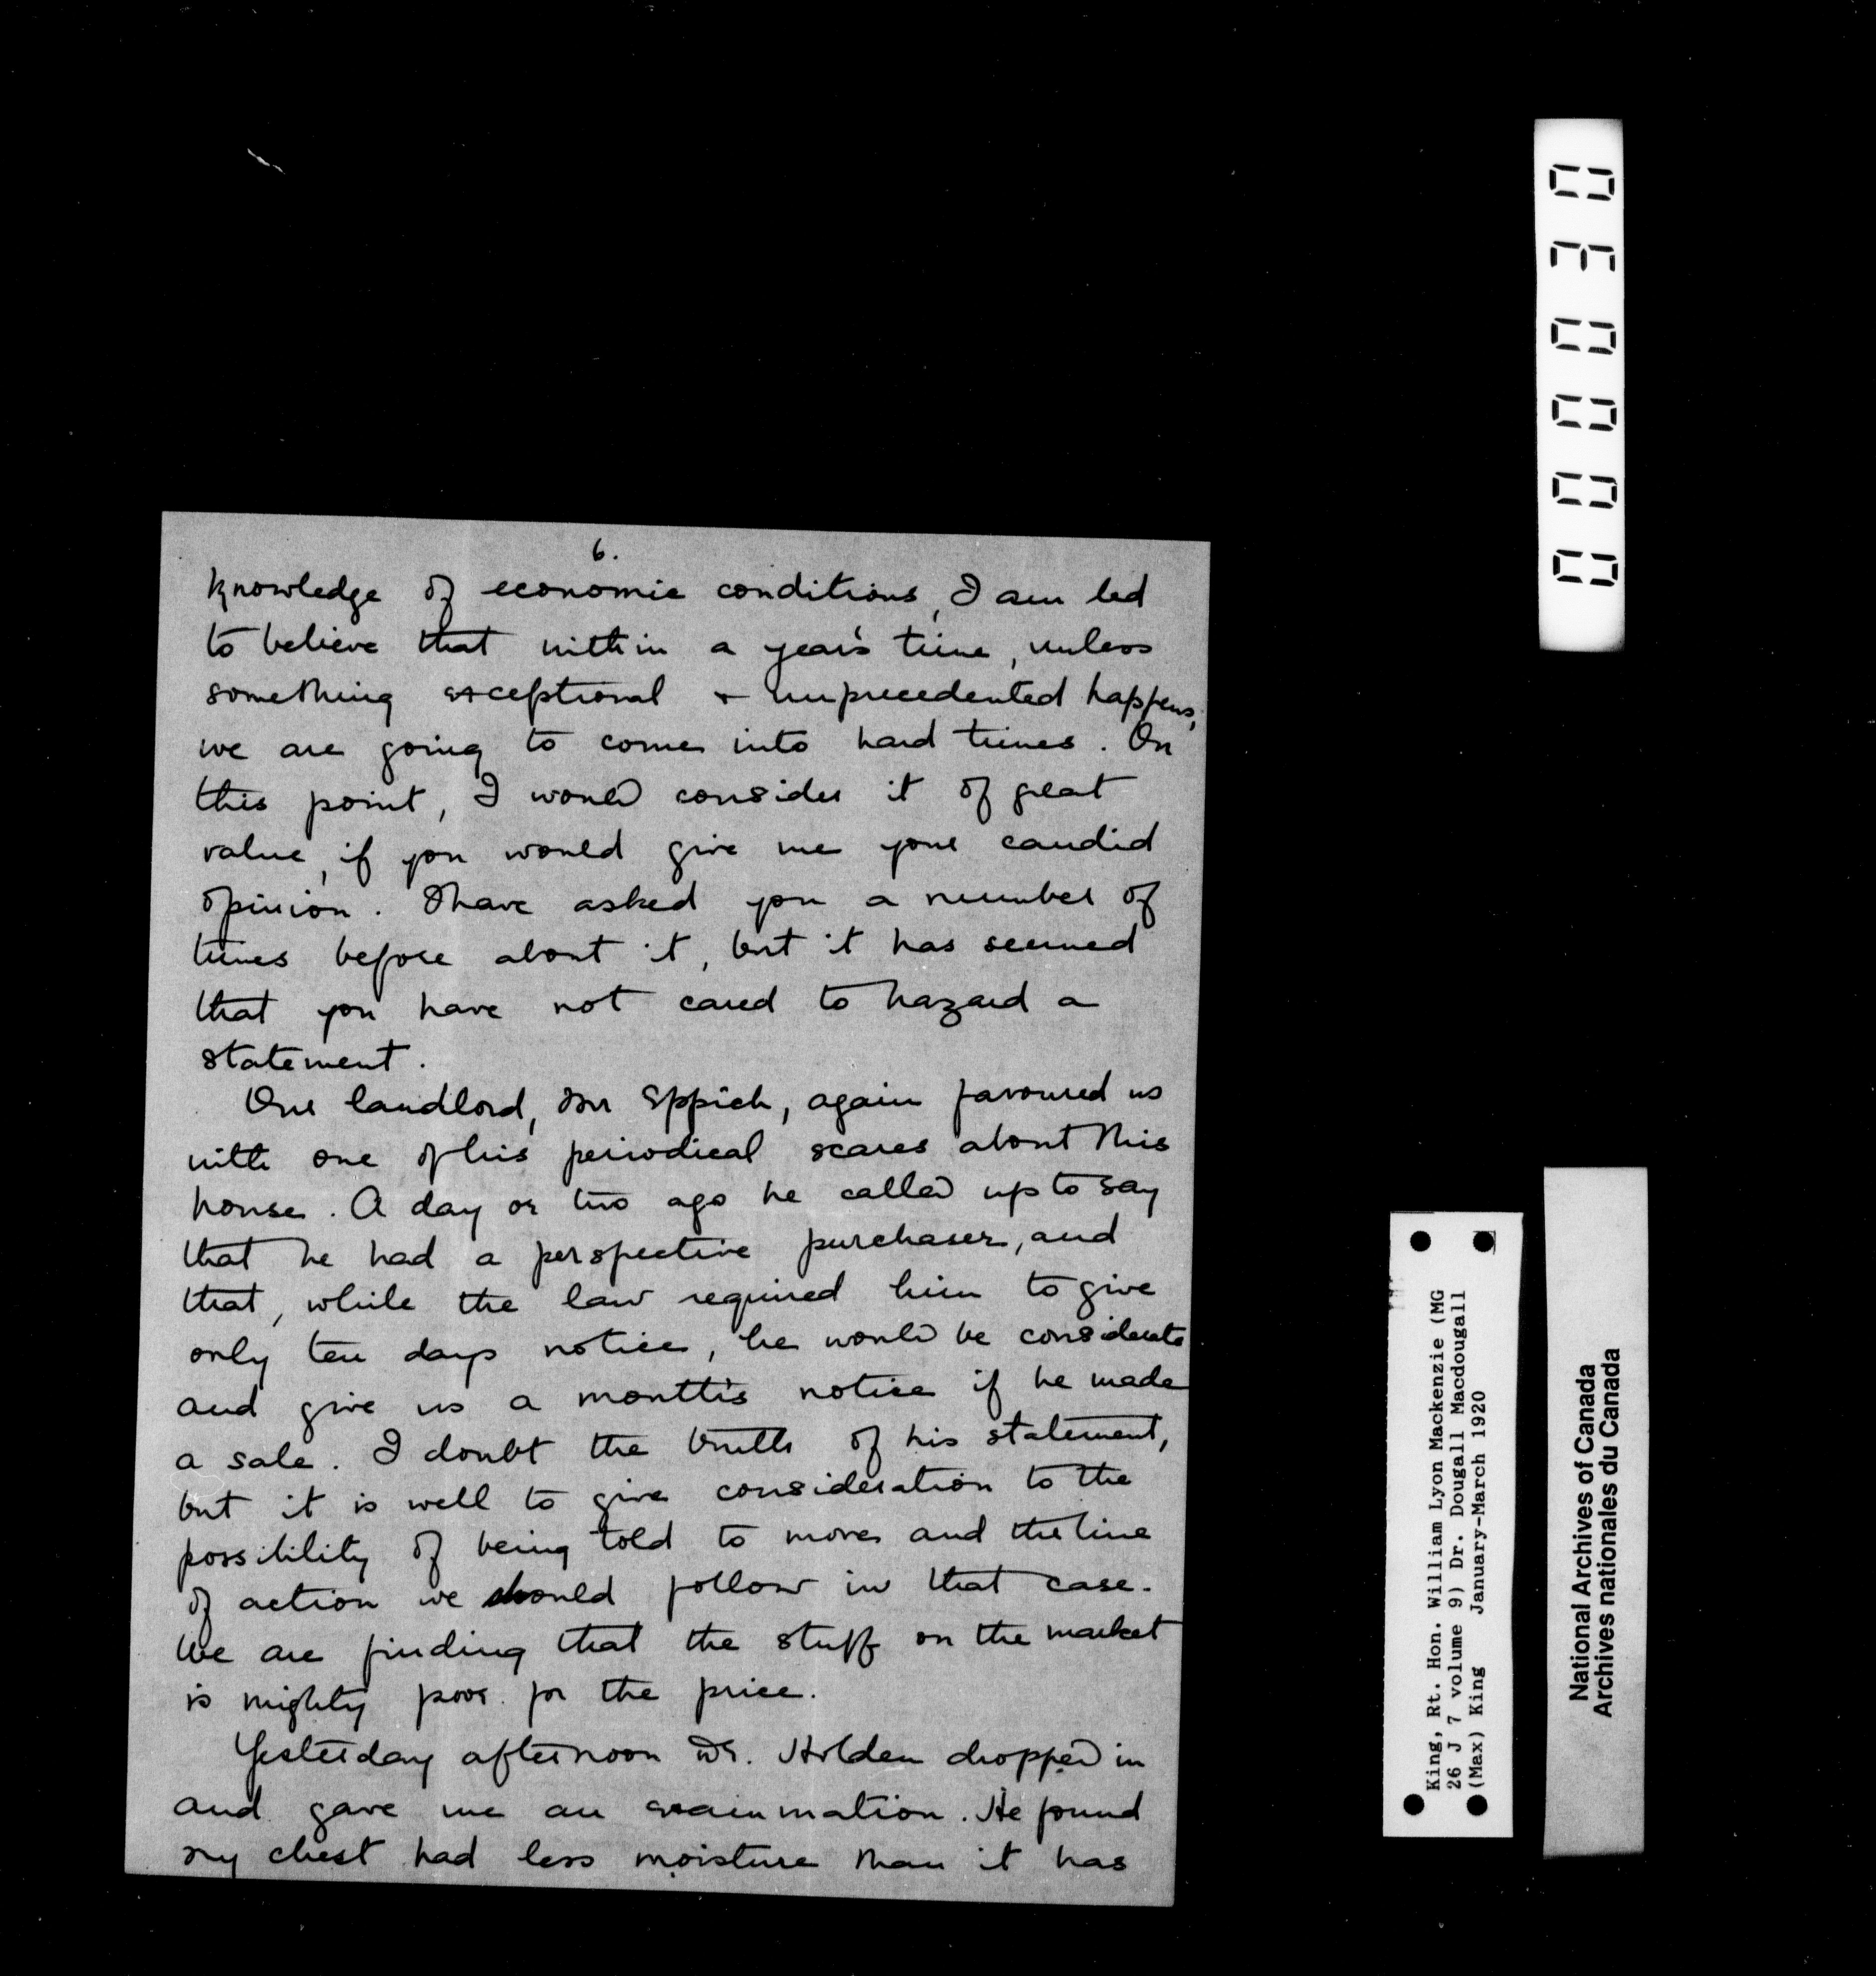 6.
knowledge of economic conditions, I am led
to believe that within a year's time, unless
something exceptional + unprecedented happens,
we are going to come into hard times. On
this point, I would consider it of great
value, if you would give me your candid
opinion. I have asked you a number of
times before about it, but it has seemed
that you have not cared to hazard a
statement.
Our landlord, Mr Eppich, again favoured us
with one of his periodical scares about this
house. A day or two ago he called up to say
that he had a perspective purchaser, and
that, while the law required him to give
only ten days notice, he would be considerate
and give us a month's notice if he made
a sale. I doubt the truth of his statement,
but it is well to give consideration to the
possibility of being told to move and the line
of action we should follow in that case.
We are finding that the stuff on the market
is mighty poor for the price.
Yesterday afternoon Dr. Holden dropped in
and gave me an examination. He found
my chest had less moisture than it has
000030
King, Rt. Hon. William Lyon Mackenzie (MG
26 J 7 volume 9) Dr. Dougall Macdougall
(Max) King January-March 1920
National Archives of Canada
Archives nationales du Canada